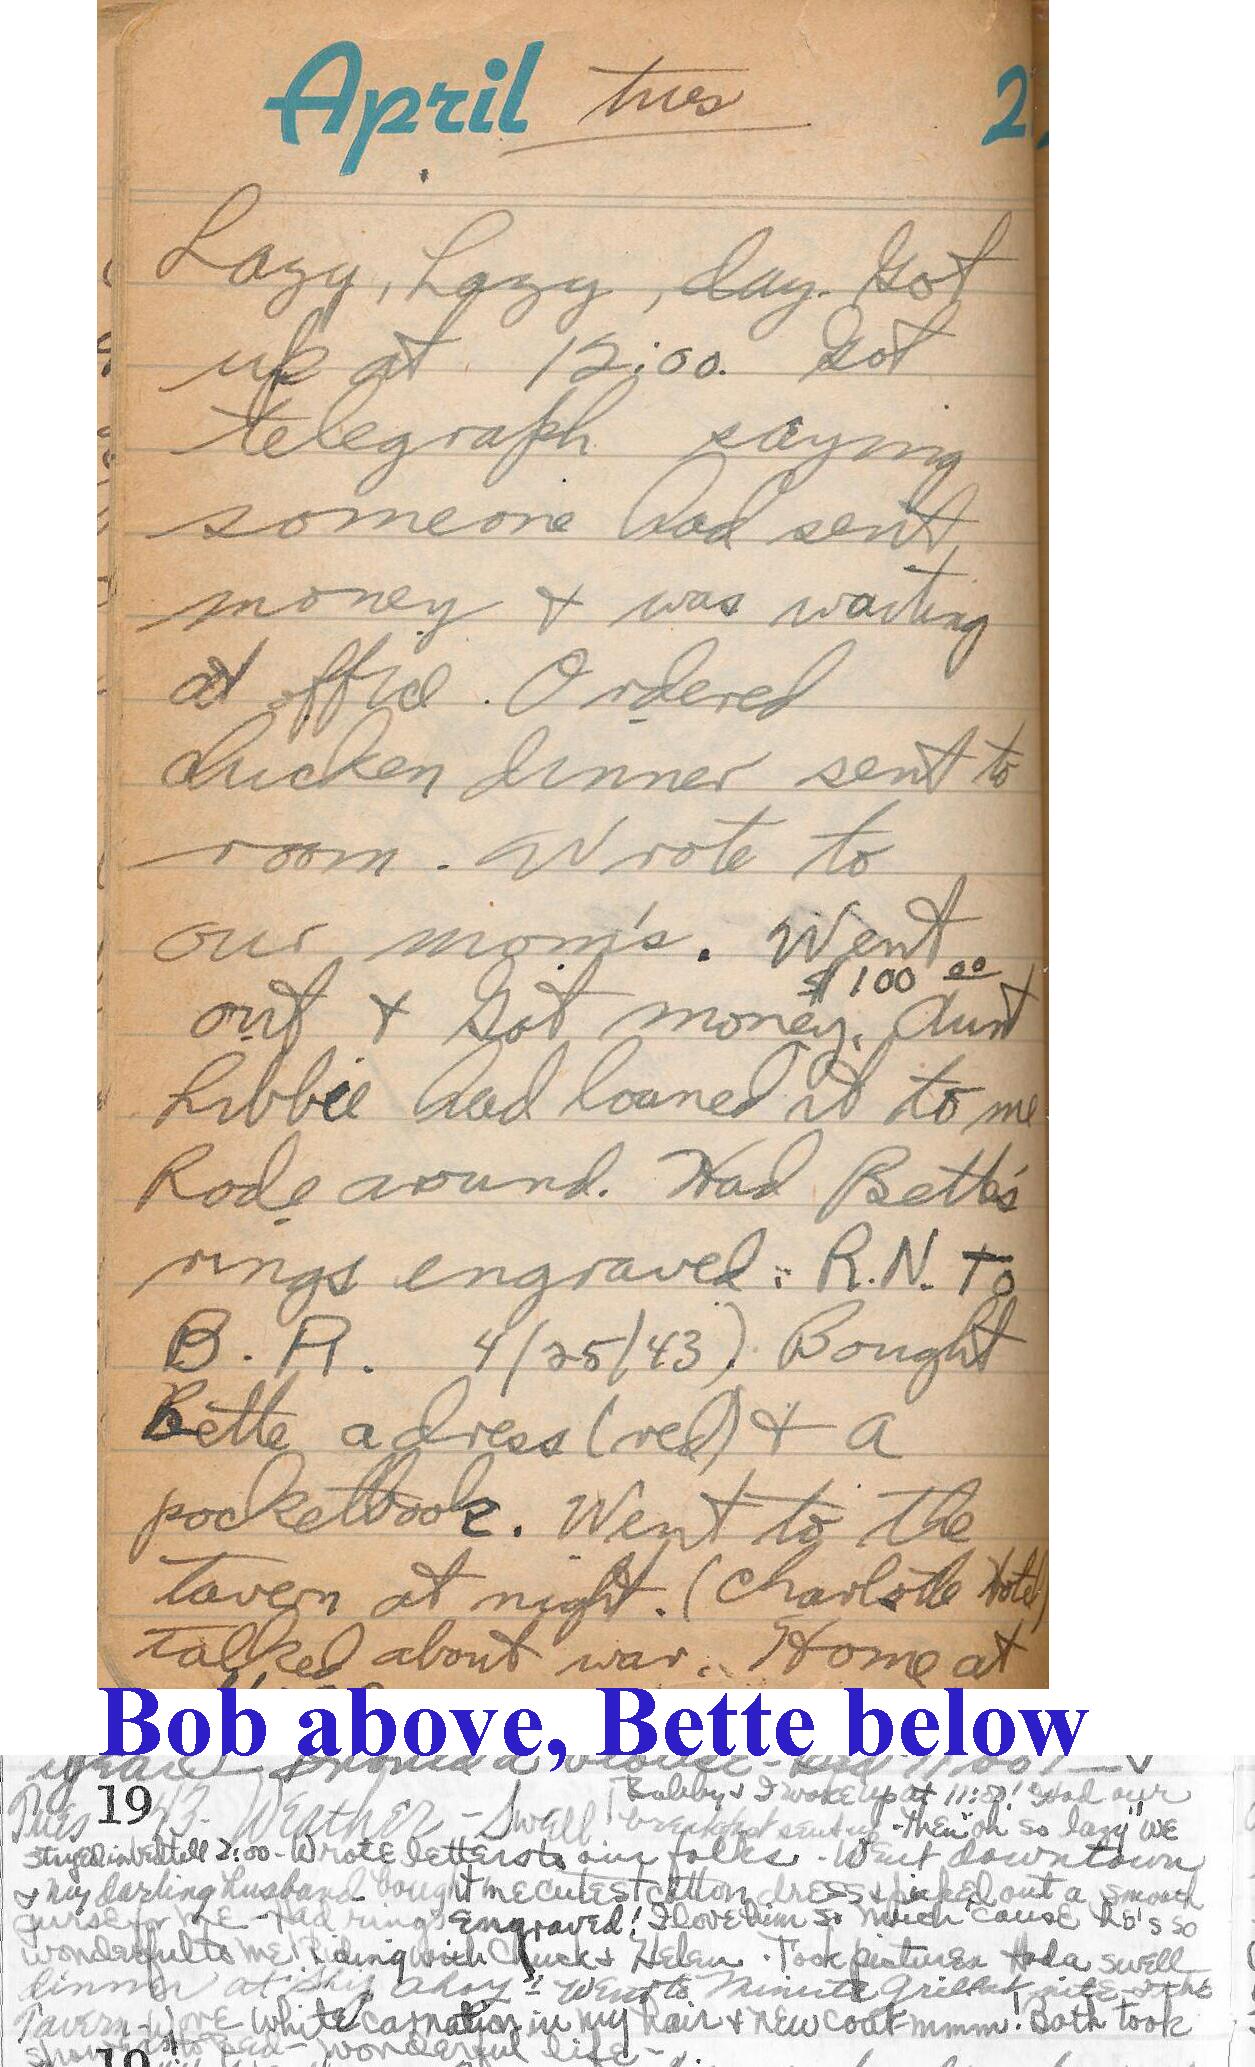 April tues 2
Lazy, Lazy, day. Got
up at 12:00. Got
telegraph saying
someone had sent
money & was waiting
at office. Ordered
chicken dinner sent to
room. Wrote to
our mom's. Went
$100 00
out & Got money. Aunt
Libbie had loaned it to me
Rode around. Had Bette's
rings engraved: R.N. to
B. R. 4/25/43). Bought
Bette a dress (red) & a
pocketbook. Went to the
tavern at night. (Charlotte Hotel)
talked about war. Home at
Bob above, Bette below
19
Tues 43. Weather - Swell Bobby & I woke up at 11:00! Had our
breakfast sent up - Then "oh so lazy" we
stayed in bed till 2:00 - Wrote letters to our folks - Went downtown
& my darling husband bought me cutest cotton dress & picked out a smooth
purse for me - Had rings engraved! I love him so much 'cause he's so
wonderful to me! Riding with Chuck & Helen. Took pictures Had a swell
dinner at "Ship Ahoy" Went to Minute Grille at nite & the
Tavern - Wore White carnation in my hair & new coat mmm! Both took
showers to bed - wonderful life -
19